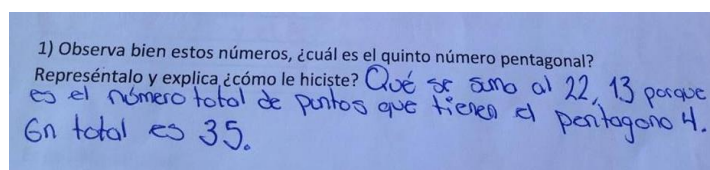 1) Observa bien estos números, ¿cuál es el quinto número pentagonal?
Represéntalo y explica ¿cómo le hiciste? Qué se sumo al 22, 13 porque
es el número total de puntos que tienen el pentagono 4.
En total es 35.